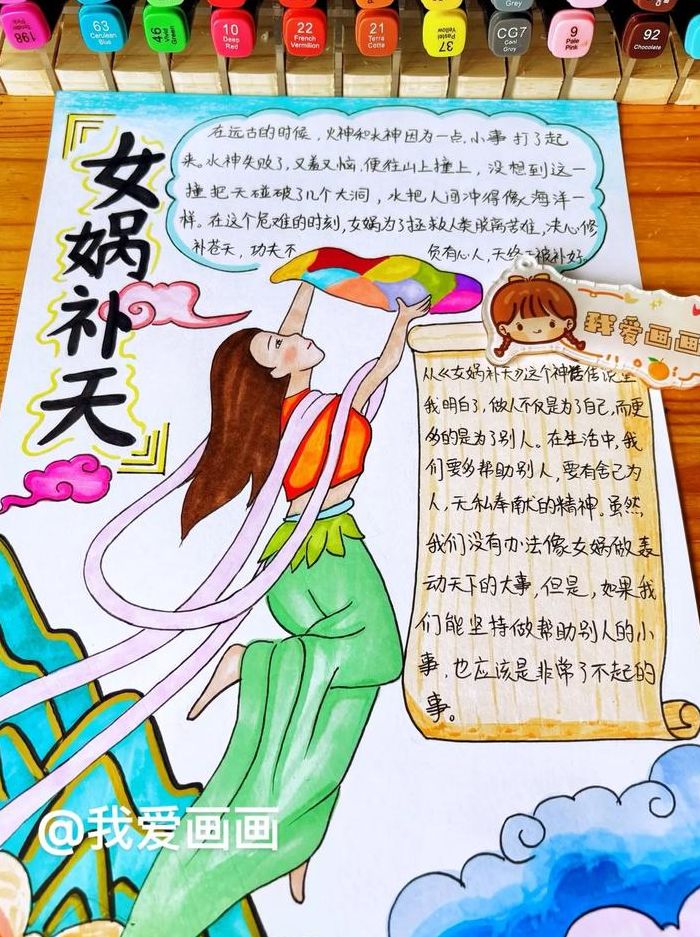 198
63
Cerulean Blue
46
Vivid Green
10
Deep Red
22
French Vermilion
21
Terra Cotta
37
Pastel Yellow
Grey
CG7
Cool Grey
9
Pale Pink
92
Chocolate
女娲补天
在远古的时候，火神和水神因为一点小事打了起
来。水神失败了，又羞又恼，便往山上撞上，没想到这一
撞把天碰破了几个大洞，水把人间冲得像海洋一
样。在这个危难的时刻，女娲为了拯救人类脱离苦难，决心修
补苍天，功夫不负有心人，天终于被补好。
我爱画画
从《女娲补天》这个神话传说里
我明白了，做人不仅是为了自己，而更
多的是为了别人。在生活中，我
们要多帮助别人，要有舍己为
人，无私奉献的精神。虽然，
我们没有办法像女娲做轰
动天下的大事，但是，如果我
们能坚持做帮助别人的小
事，也应该是非常了不起的
事。
@我爱画画